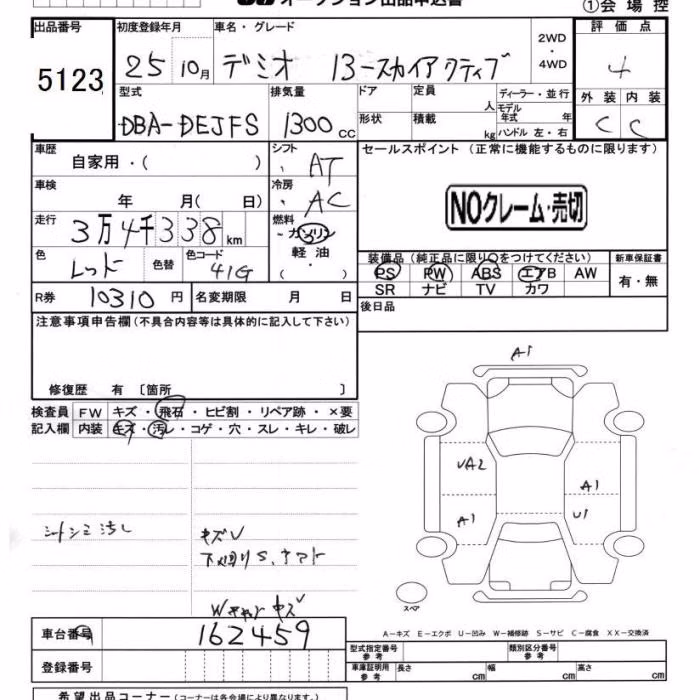 オークション出品申込書
①会場控
出品番号
5123
初度登録年月
25 10月
車名・グレード
デミオ 13-スカイアクティブ
2WD
・
4WD
評価点
4
型式
DBA-DEJFS
排気量
1300cc
ドア
形状
定員
人
積載
kg
ディーラー・並行
モデル
年式 年
ハンドル 左・右
外装 内装
C C
車歴
自家用・( )
シフト
AT
車検
年 月( 日)
冷房
AC
走行
3万4千338km
燃料
ガソリン
軽油
( )
色
レッド
色替
色コード
41G
R券 10310円
名変期限 月 日
セールスポイント(正常に機能するものに限ります)
NOクレーム・売切
装備品(純正品に限り○をつけてください)
PS PW ABS エアB AW
SR ナビ TV カワ
新車保証書
有・無
後日品
注意事項申告欄(不具合内容等は具体的に記入して下さい)
修復歴 有〔箇所 〕
検査員 FW キズ・飛石・ヒビ割・リペア跡・×要
記入欄 内装 キズ・汚レ・コゲ・穴・スレ・キレ・破レ
シートシミ汚レ
キズV
下廻りS、
キズV
A1
UA2
A1
A1
U1
スペア
A-キズ E-エクボ U-凹み W-補修跡 S-サビ C-腐食 XX-交換済
車台番号
162459
登録番号
型式指定番号
参考
類別区分番号
参考
車庫証明用
参考
長さ cm 幅 cm 高さ cm
希望出品コーナー(コーナーは各会場により異なります。)